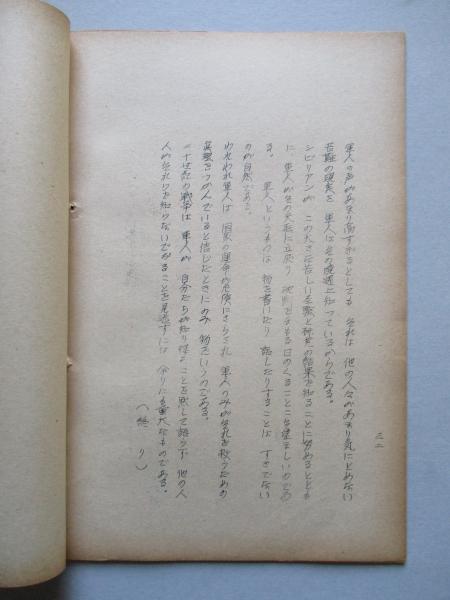 三二
軍人の声があまり高すぎるとしても それは 他の人々があまり気にとめない
苦難の現実を 軍人は知っているからである。
シビリアンが この大きな苦しい意識と研究の結果を知ることに努めるととも
に 軍人がその天職に立戻り 沈黙を守る日のくることこそ望ましいのであ
る。 軍人というものは 物を書いたり 話したりすることは すきでない
のが自然である。
われわれ軍人は 国家の運命が危険にさらされ 軍人のみがそれを救うための
真実をつかんでいると信じたときにのみ 物をいうのである。
二十世紀の戦争は 軍人が 自分たちが知り得たことを黙して語らず 他の人
人がそれを知らないでいることを見逃すには 余りにも重大なものである。
(終 り)